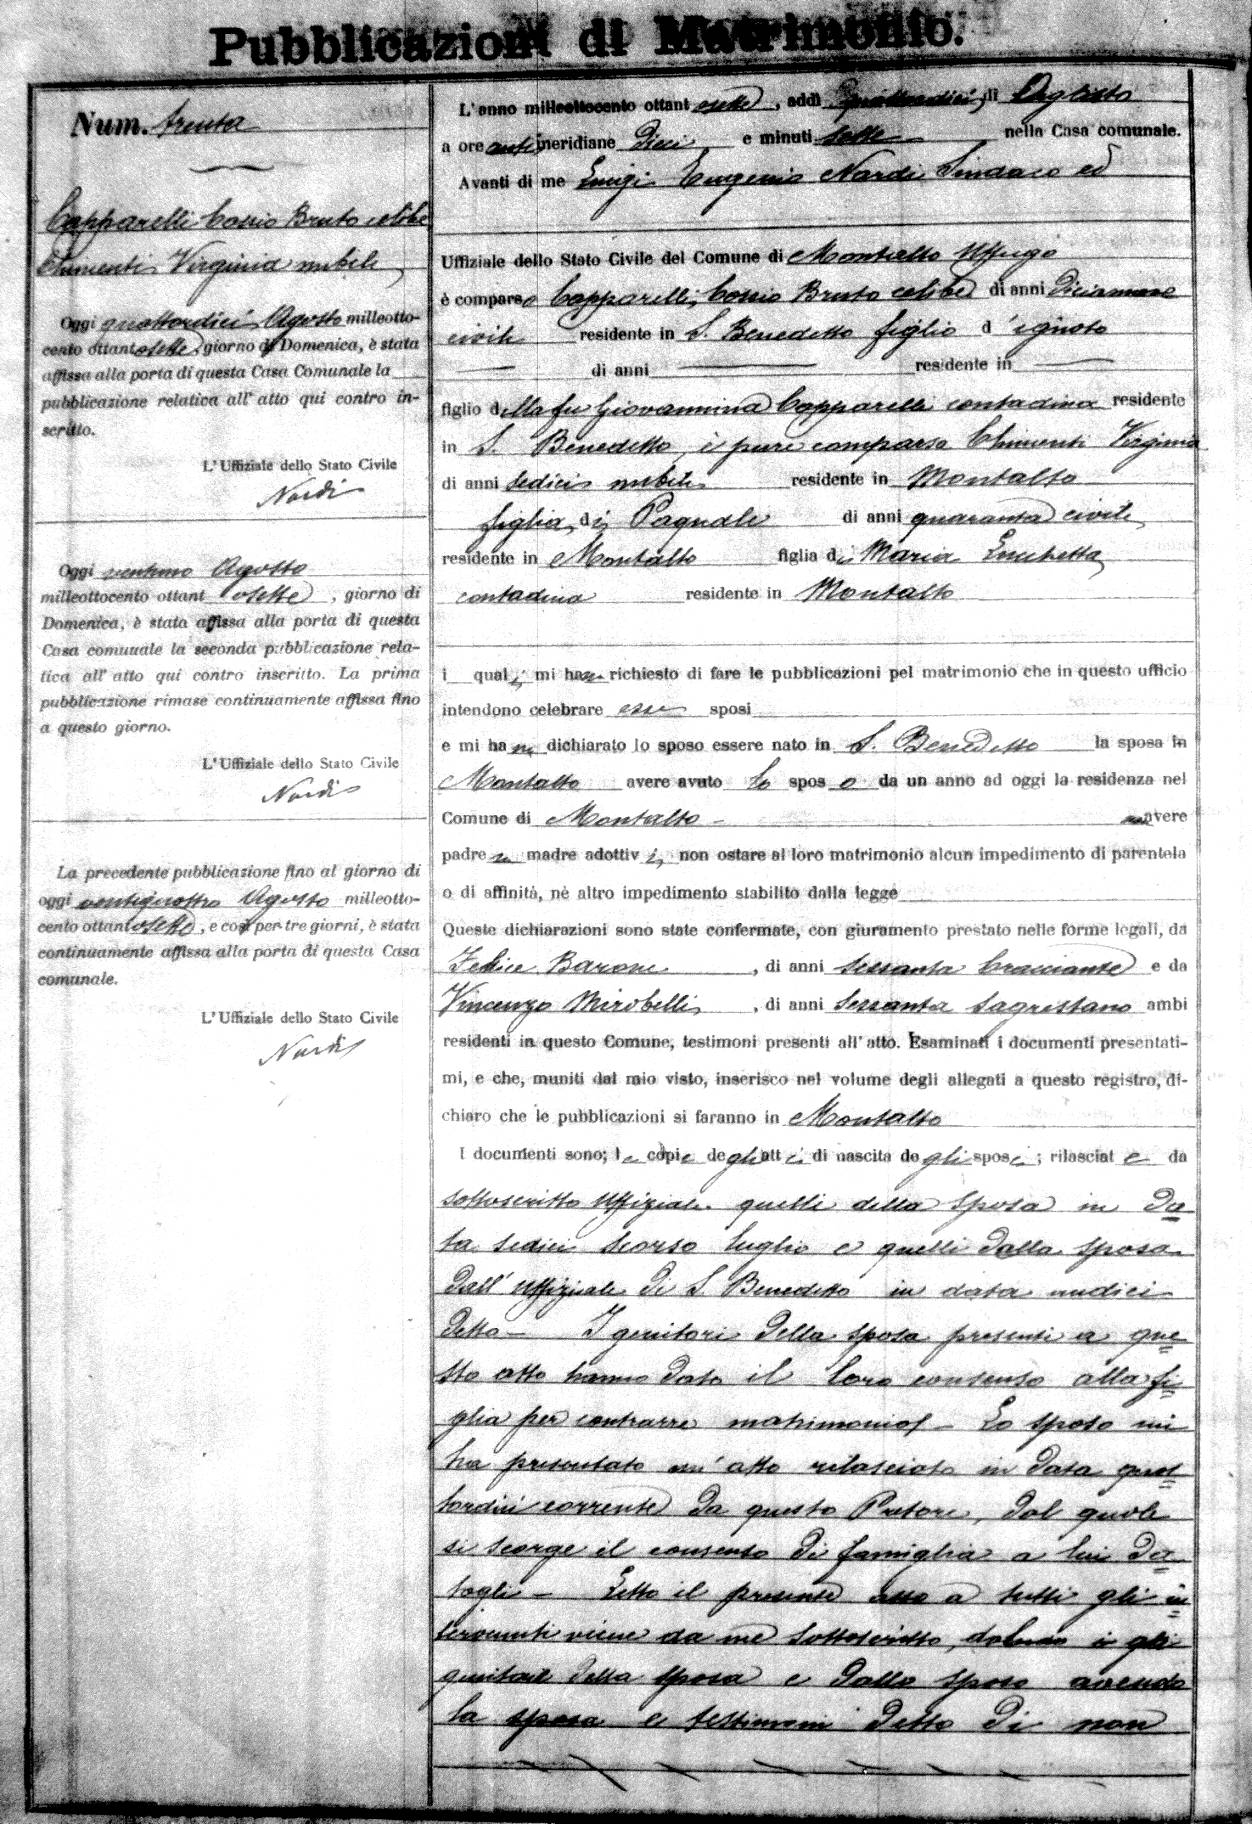 Pubblicazioni di Matrimonio.
Num. trenta
Capparelli Cossio Bruto celibe
Chimenti Virginia nubile
Oggi quattordici Agosto milleotto-
cento ottantasette, giorno di Domenica, è stata
affissa alla porta di questa Casa Comunale la
pubblicazione relativa all'atto qui contro in-
scritto.
L'Uffiziale dello Stato Civile
Nardi
Oggi ventuno Agosto
milleottocento ottantasette, giorno di
Domenica, è stata affissa alla porta di questa
Casa comunale la seconda pubblicazione rela-
tiva all'atto qui contro inscritto. La prima
pubblicazione rimase continuamente affissa fino
a questo giorno.
L'Uffiziale dello Stato Civile
Nardi
La precedente pubblicazione fino al giorno di
oggi ventiquattro Agosto milleotto-
cento ottantasette, e così per tre giorni, è stata
continuamente affissa alla porta di questa Casa
comunale.
L'Uffiziale dello Stato Civile
Nardi
L'anno milleottocento ottantasette, addì quattordici di Agosto
a ore antimeridiane dieci e minuti sette nella Casa comunale.
Avanti di me Luigi Eugenio Nardi Sindaco ed
Uffiziale dello Stato Civile del Comune di Montalto Uffugo
è comparso Capparelli Cossio Bruto celibe di anni diciannove
civile residente in S. Benedetto figlio d'ignoto
di anni residente in
figlio della fu Giovannina Capparelli contadina residente
in S. Benedetto, è pure comparsa Chimenti Virginia
di anni sedici nubile residente in Montalto
figlia di Pasquale di anni quaranta civile
residente in Montalto figlia di Maria Enrichetta
contadina residente in Montalto
i quali mi han richiesto di fare le pubblicazioni pel matrimonio che in questo ufficio
intendono celebrare essi sposi
e mi han dichiarato lo sposo essere nato in S. Benedetto la sposa in
Montalto avere avuto lo sposo da un anno ad oggi la residenza nel
Comune di Montalto avere
padre madre adottivi, non ostare al loro matrimonio alcun impedimento di parentela
o di affinità, nè altro impedimento stabilito dalla legge
Queste dichiarazioni sono state confermate, con giuramento prestato nelle forme legali, da
Felice Barone, di anni sessanta bracciante e da
Vincenzo Mirabelli, di anni sessanta sagrestano ambi
residenti in questo Comune, testimoni presenti all'atto. Esaminati i documenti presentati-
mi, e che, muniti dal mio visto, inserisco nel volume degli allegati a questo registro, di-
chiaro che le pubblicazioni si faranno in Montalto
I documenti sono; le copie degli atti di nascita degli sposi; rilasciate da
sottoscritto Uffiziale quelli della sposa in da=
ta sedici scorso luglio e quelli dalla sposa
dall'Uffiziale di S. Benedetto in data undici
detto - I genitori della sposa presenti a que=
sto atto hanno dato il loro consenso alla fi=
glia per contrarre matrimonio - Lo sposo mi
ha presentato un'atto rilasciato in data quat=
tordici corrente da questo Pretore, dal quale
si scorge il consenso di famiglia a lui da=
togli - Letto il presente atto a tutti gli in=
tervenuti viene da me sottoscritto,
genitori della sposa e dallo sposo avendo
la sposa e testimoni detto di non